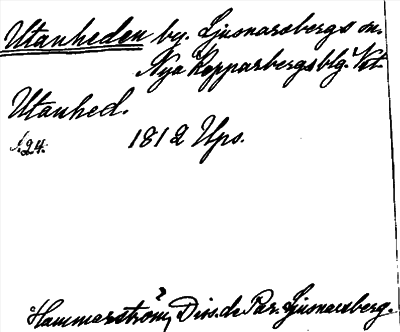 Utanheden by. Ljusnarsbergs sn.
Nya Kopparbergs blg. Vstm.
Utanhed.
s. 24. 1812 Ups.
Hammarström, Diss. de Par. Ljusnarsberg.